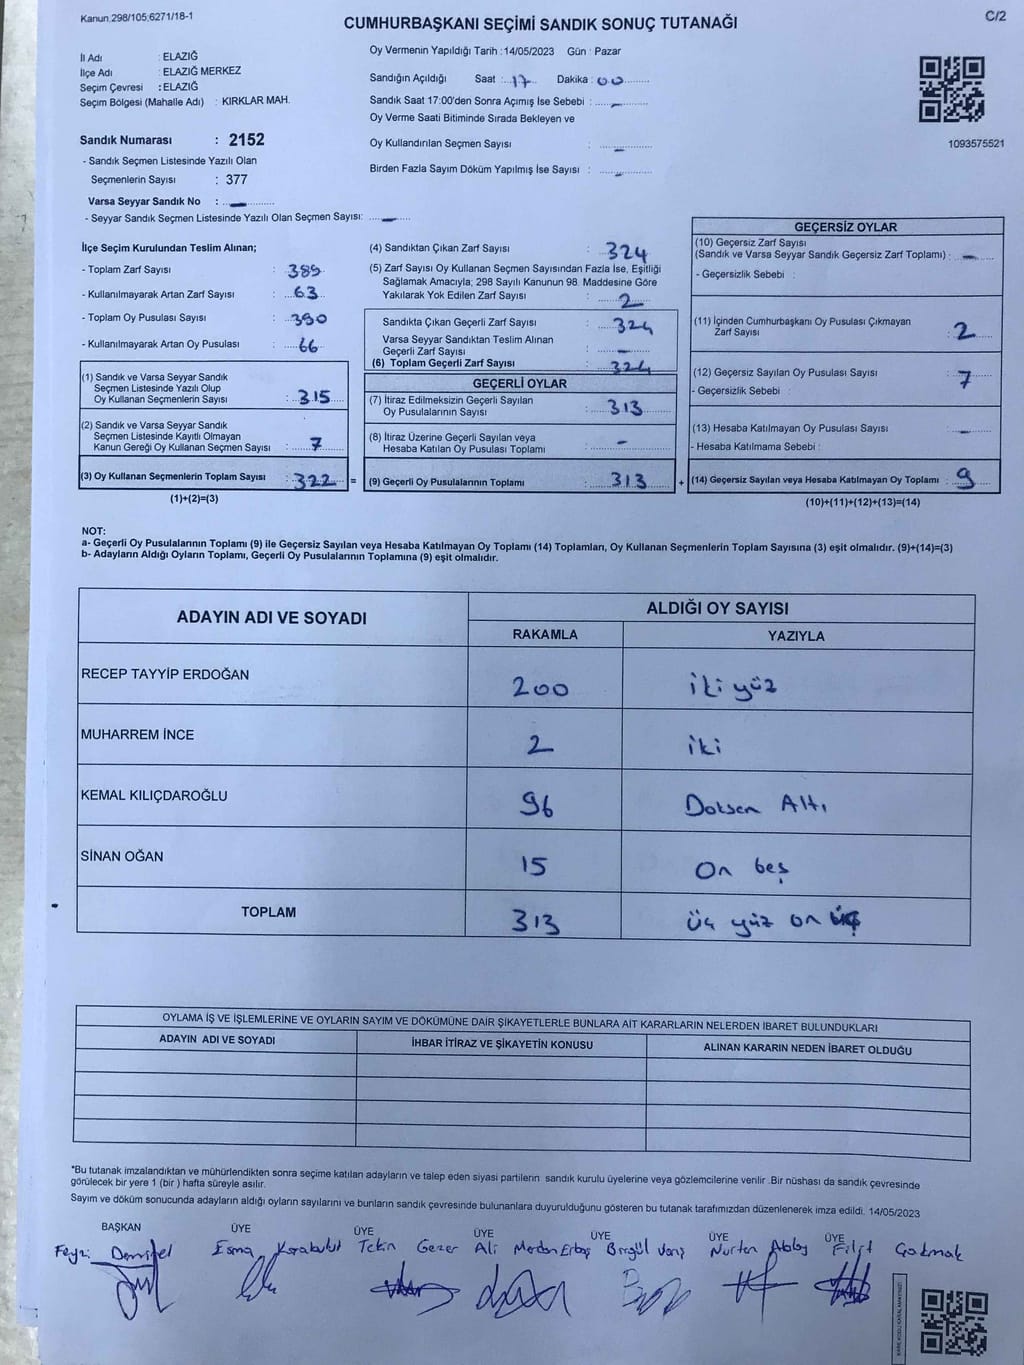 Kanun.298/105;6271/18-1
C/2
CUMHURBAŞKANI SEÇİMİ SANDIK SONUÇ TUTANAĞI
İl Adı : ELAZIĞ
İlçe Adı : ELAZIĞ MERKEZ
Seçim Çevresi : ELAZIĞ
Seçim Bölgesi (Mahalle Adı) : KIRKLAR MAH.
Sandık Numarası : 2152
- Sandık Seçmen Listesinde Yazılı Olan
Seçmenlerin Sayısı : 377
Varsa Seyyar Sandık No : –
- Seyyar Sandık Seçmen Listesinde Yazılı Olan Seçmen Sayısı: –
Oy Vermenin Yapıldığı Tarih : 14/05/2023 Gün : Pazar
Sandığın Açıldığı Saat : 17 Dakika : 00
Sandık Saat 17:00'den Sonra Açımış İse Sebebi : –
Oy Verme Saati Bitiminde Sırada Bekleyen ve
Oy Kullandırılan Seçmen Sayısı : –
Birden Fazla Sayım Döküm Yapılmış İse Sayısı : –
1093575521
İlçe Seçim Kurulundan Teslim Alınan;
- Toplam Zarf Sayısı : 385
- Kullanılmayarak Artan Zarf Sayısı : 63
- Toplam Oy Pusulası Sayısı : 390
- Kullanılmayarak Artan Oy Pusulası : 66
(1) Sandık ve Varsa Seyyar Sandık
Seçmen Listesinde Yazılı Olup
Oy Kullanan Seçmenlerin Sayısı : 315
(2) Sandık ve Varsa Seyyar Sandık
Seçmen Listesinde Kayıtlı Olmayan
Kanun Gereği Oy Kullanan Seçmen Sayısı : 7
(3) Oy Kullanan Seçmenlerin Toplam Sayısı : 322 =
(1)+(2)=(3)
(4) Sandıktan Çıkan Zarf Sayısı : 324
(5) Zarf Sayısı Oy Kullanan Seçmen Sayısından Fazla İse, Eşitliği
Sağlamak Amacıyla; 298 Sayılı Kanunun 98. Maddesine Göre
Yakılarak Yok Edilen Zarf Sayısı : 2
Sandıkta Çıkan Geçerli Zarf Sayısı : 324
Varsa Seyyar Sandıktan Teslim Alınan
Geçerli Zarf Sayısı : –
(6) Toplam Geçerli Zarf Sayısı : 324
GEÇERLİ OYLAR
(7) İtiraz Edilmeksizin Geçerli Sayılan
Oy Pusulalarının Sayısı : 313
(8) İtiraz Üzerine Geçerli Sayılan veya
Hesaba Katılan Oy Pusulası Toplamı : –
(9) Geçerli Oy Pusulalarının Toplamı : 313 +
GEÇERSİZ OYLAR
(10) Geçersiz Zarf Sayısı
(Sandık ve Varsa Seyyar Sandık Geçersiz Zarf Toplamı) : –
- Geçersizlik Sebebi :
(11) İçinden Cumhurbaşkanı Oy Pusulası Çıkmayan
Zarf Sayısı : 2
(12) Geçersiz Sayılan Oy Pusulası Sayısı : 7
- Geçersizlik Sebebi :
(13) Hesaba Katılmayan Oy Pusulası Sayısı : –
- Hesaba Katılmama Sebebi :
(14) Geçersiz Sayılan veya Hesaba Katılmayan Oy Toplamı : 9
(10)+(11)+(12)+(13)=(14)
NOT:
a- Geçerli Oy Pusulalarının Toplamı (9) ile Geçersiz Sayılan veya Hesaba Katılmayan Oy Toplamı (14) Toplamları, Oy Kullanan Seçmenlerin Toplam Sayısına (3) eşit olmalıdır. (9)+(14)=(3)
b- Adayların Aldığı Oyların Toplamı, Geçerli Oy Pusulalarının Toplamına (9) eşit olmalıdır.
ADAYIN ADI VE SOYADI
ALDIĞI OY SAYISI
RAKAMLA YAZIYLA
RECEP TAYYİP ERDOĞAN 200 iki yüz
MUHARREM İNCE 2 iki
KEMAL KILIÇDAROĞLU 96 Doksan Altı
SİNAN OĞAN 15 On beş
TOPLAM 313 üç yüz on üç
OYLAMA İŞ VE İŞLEMLERİNE VE OYLARIN SAYIM VE DÖKÜMÜNE DAİR ŞİKAYETLERLE BUNLARA AİT KARARLARIN NELERDEN İBARET BULUNDUKLARI
ADAYIN ADI VE SOYADI İHBAR İTİRAZ VE ŞİKAYETİN KONUSU ALINAN KARARIN NEDEN İBARET OLDUĞU
*Bu tutanak imzalandıktan ve mühürlendikten sonra seçime katılan adayların ve talep eden siyasi partilerin sandık kurulu üyelerine veya gözlemcilerine verilir .Bir nüshası da sandık çevresinde
görülecek bir yere 1 (bir ) hafta süreyle asılır.
Sayım ve döküm sonucunda adayların aldığı oyların sayılarını ve bunların sandık çevresinde bulunanlara duyurulduğunu gösteren bu tutanak tarafımızdan düzenlenerek imza edildi. 14/05/2023
BAŞKAN ÜYE ÜYE ÜYE ÜYE ÜYE ÜYE
Feyzi Demirel Esma Karabulut Tekin Gezer Ali Merdan Erbaş Birgül Nurten